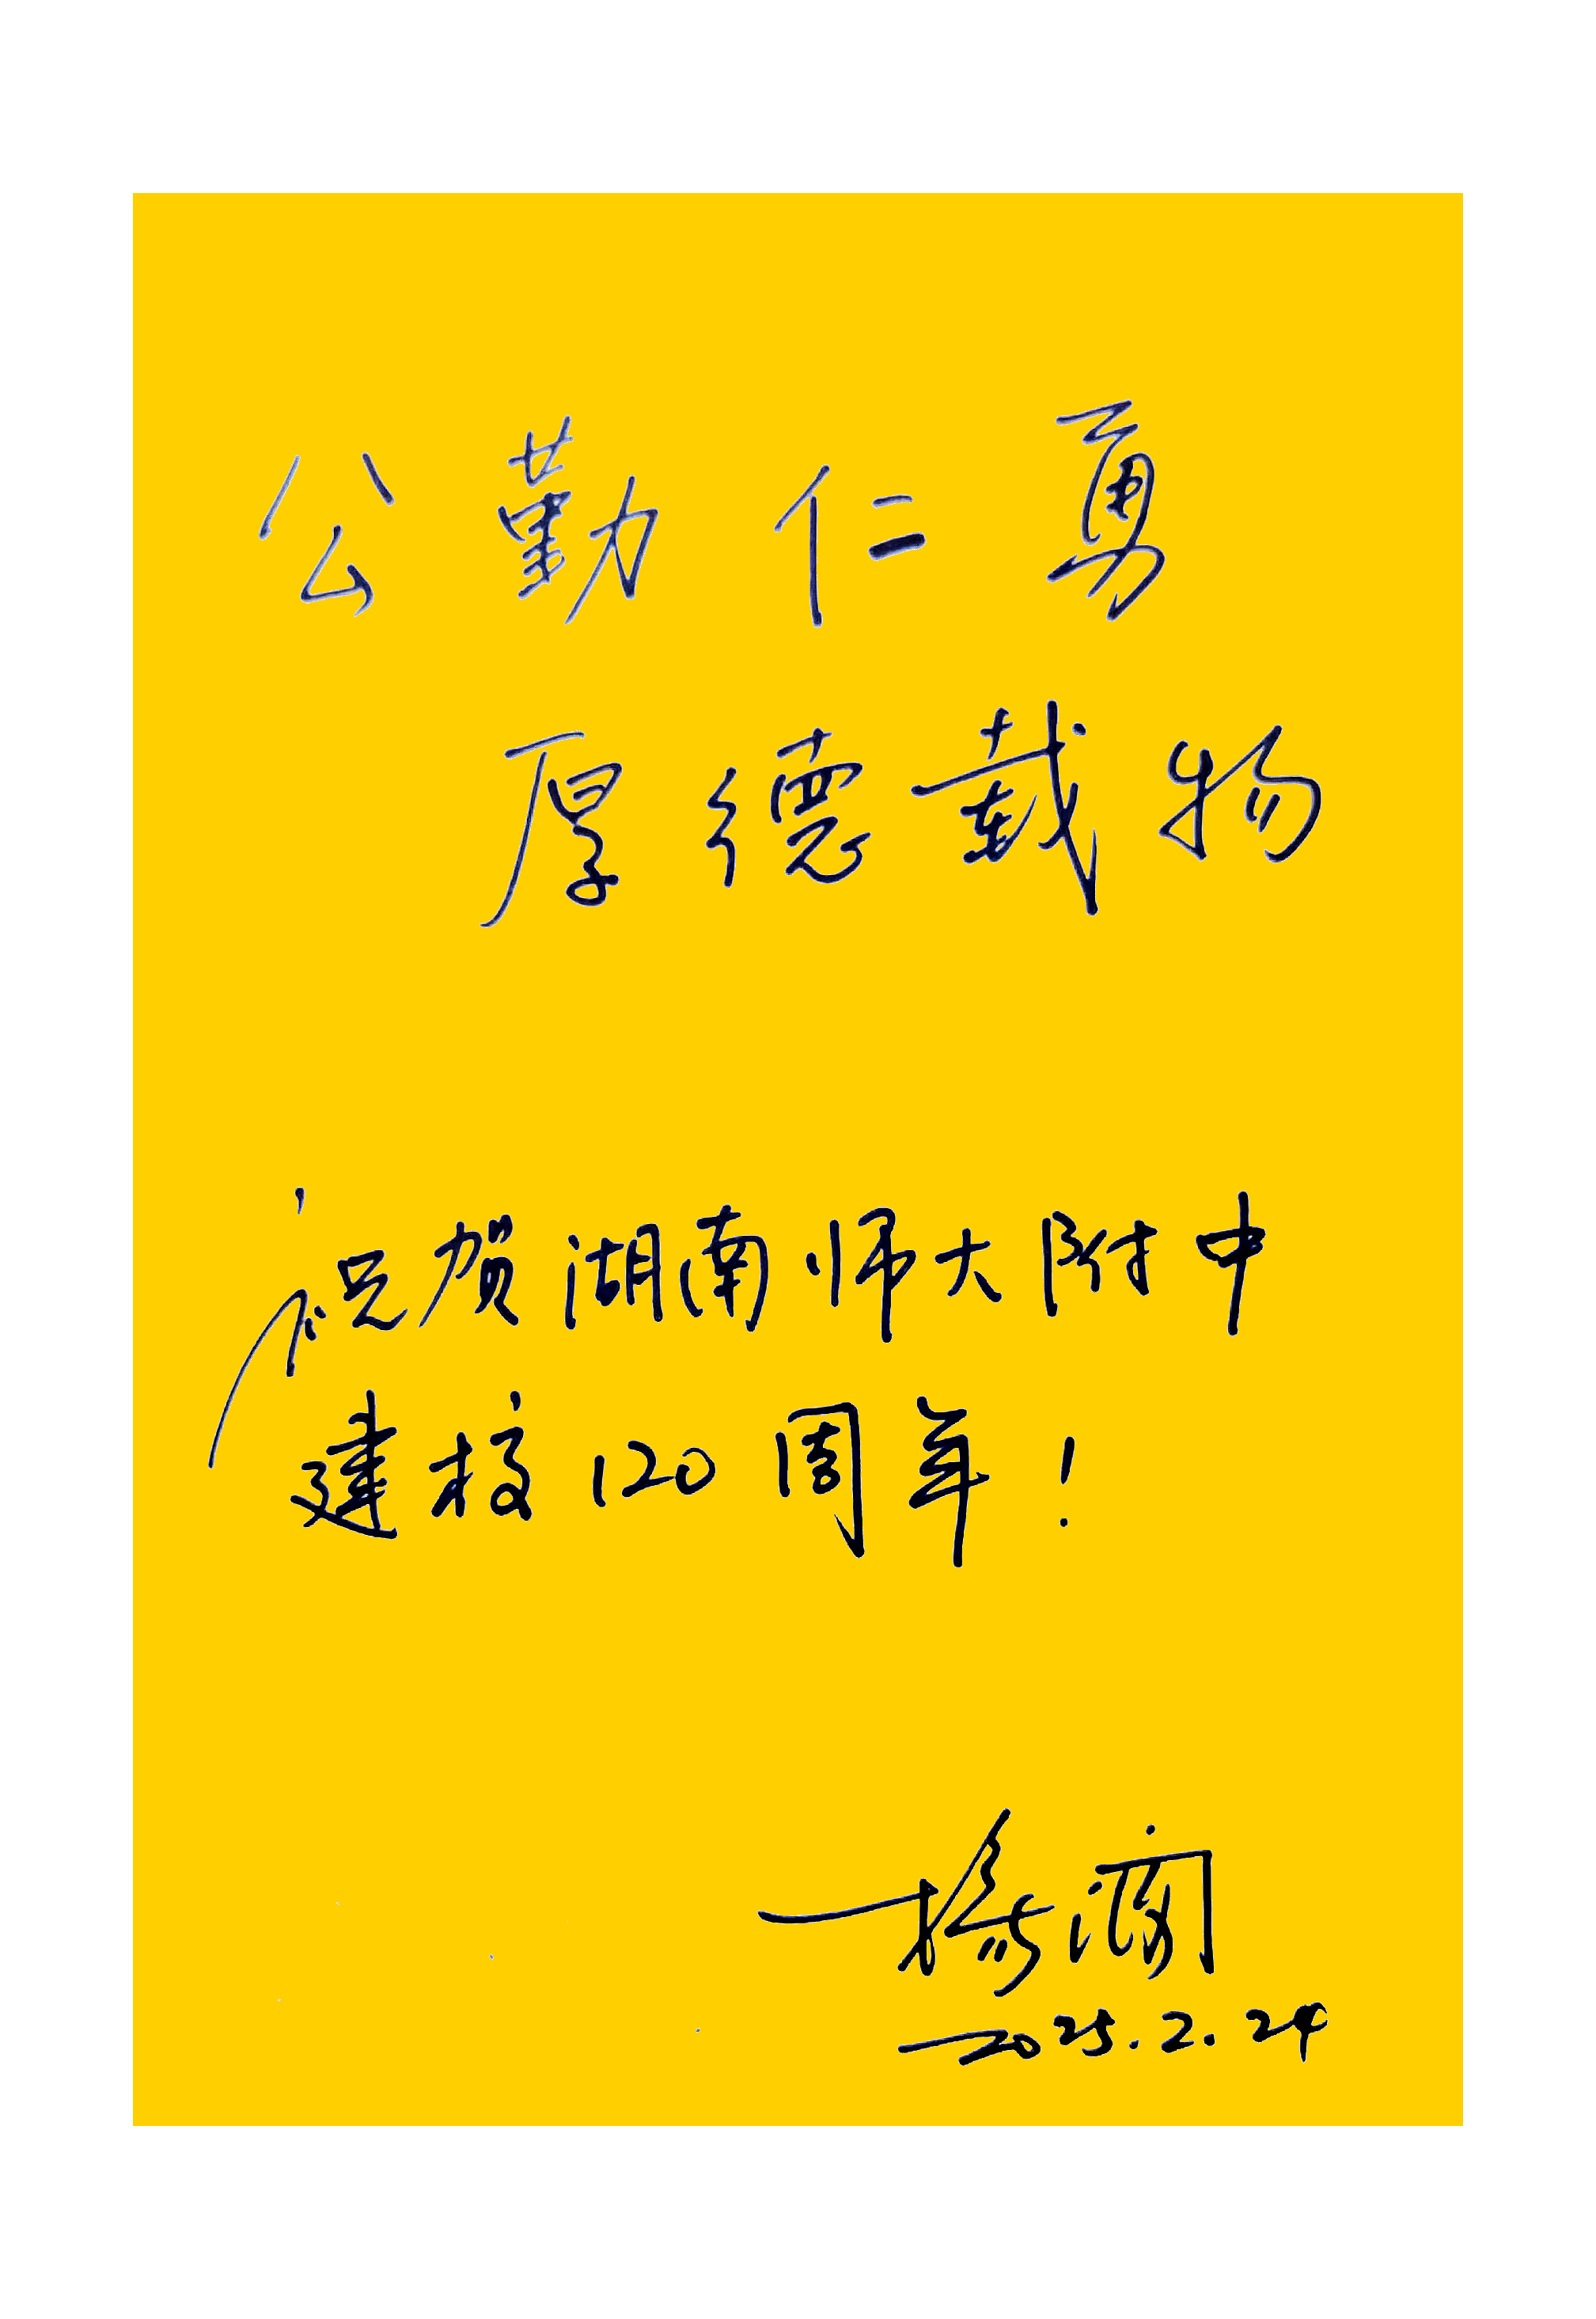 公勤仁勇
厚德载物
祝贺湖南师大附中
建校120周年!
2025.2.24